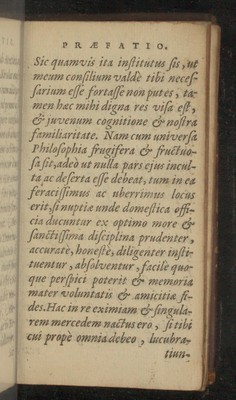 PRÆFATIO.
Sic quamvis ita institutus sis, ut
meum consilium valdè tibi neces-
sarium esse fortasse non putes, ta-
men hæc mihi digna res visa est,
& juvenum cognitione & nostra
familiaritate. Nam cum universa
Philosophia frugifera & fructuo-
sa sit, adeò ut nulla pars ejus incul-
ta ac deserta esse debeat, tum in ea
feracissimus ac uberrimus locus
erit, si nuptiæ unde domestica offi-
cia ducuntur ex optimo more &
sanctissima disciplina prudenter,
accuratè, honestè, diligenter insti-
tuentur, absolventur, facilè quo-
que perspici poterit & memoria
mater voluntatis & amicitiæ fi-
des. Hac in re eximiam & singula-
rem mercedem nactus ero, si tibi
cui propè omnia debeo, lucubra-
tiun-